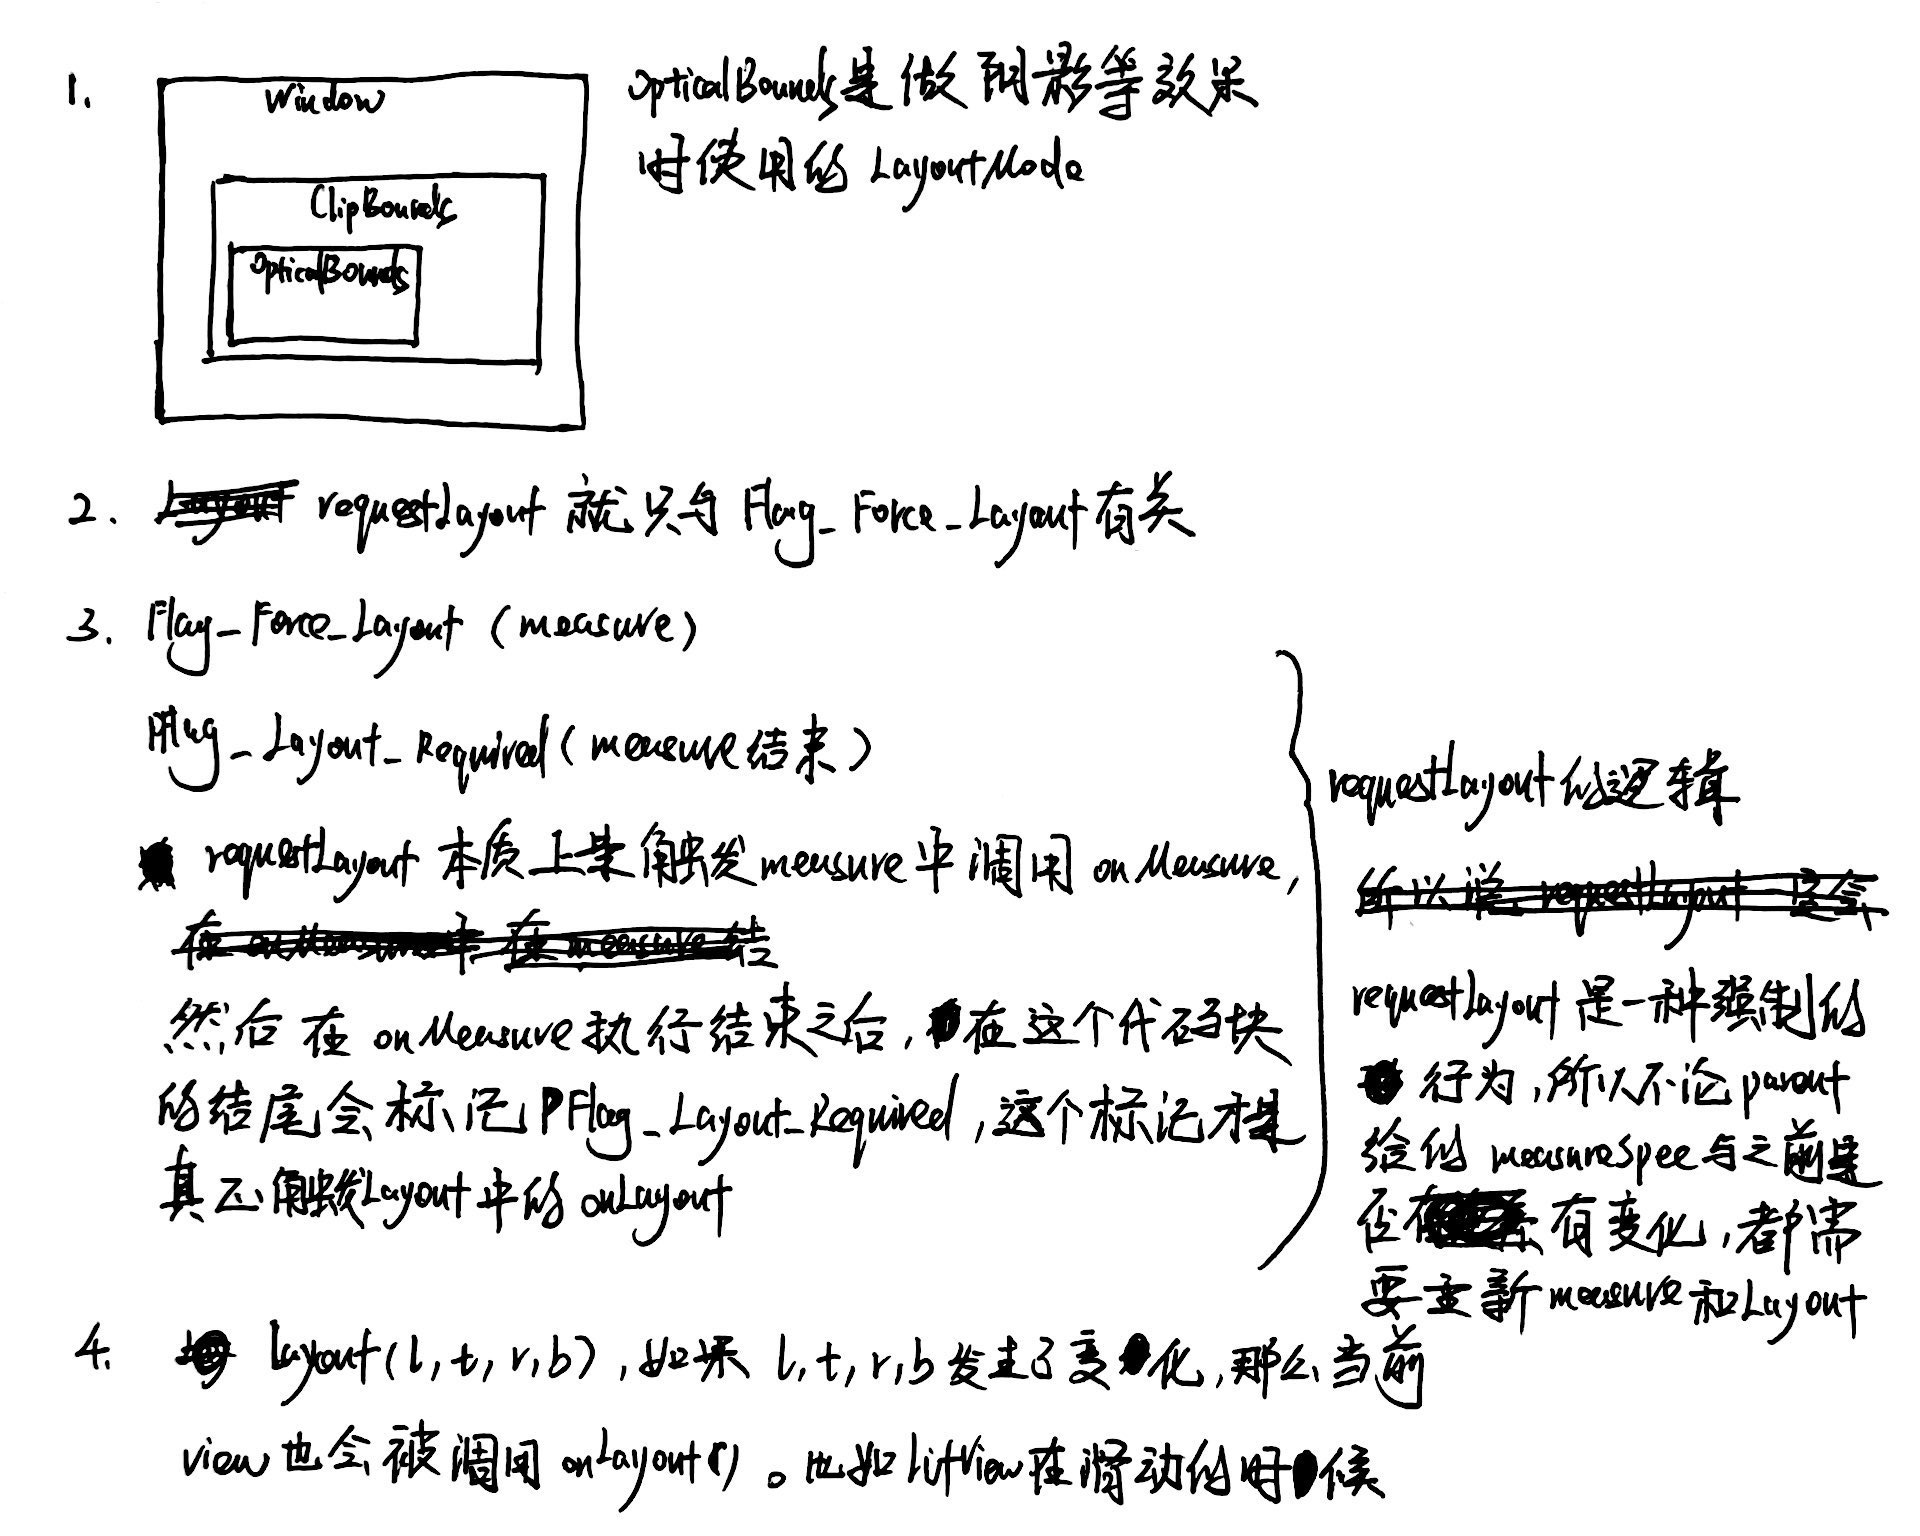 1.
Window
ClipBounds
OpticalBounds
OpticalBounds是做阴影等效果
时使用的 LayoutMode
2. Layout requestLayout 就只与 Flag_Force_Layout有关
3. Flag_Force_Layout (measure)
PFlag_Layout_Required(measure结束)
requestLayout 本质上是触发measure中调用 onMeasure,
在onMeasure中 在measure结
然后在 onMeasure执行结束之后,在这个代码块
的结尾会标记PFlag_Layout_Required,这个标记才是
真正触发Layout中的 onLayout
requestLayout的逻辑
所以说, requestLayout 是会
requestLayout是一种强制的
行为,所以不论parent
给的 measureSpec与之前是
否有变化,都需
要重新measure和Layout
4. layout(l,t,r,b),如果 l,t,r,b发生了变化,那么当前
view也会被调用onLayout()。比如ListView在滑动的时候